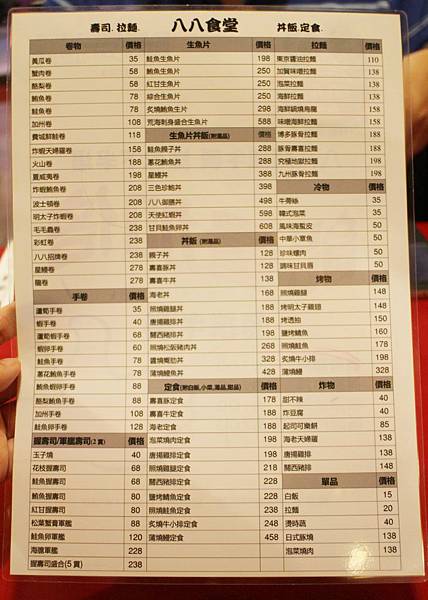 壽司. 拉麵. 八八食堂 丼飯.定食.
卷物 價格
黃瓜卷 35
蟹肉卷 58
酪梨卷 58
鮪魚卷 58
鮭魚卷 78
加州卷 108
費城鮮鮭卷 118
炸蝦天婦羅卷 158
火山卷 188
夏威夷卷 198
炸蝦鮪魚卷 208
波士頓卷 208
明太子炸蝦卷 208
毛毛蟲卷 238
彩虹卷 238
八八招牌卷 238
星鰻卷 278
龍卷 278
手卷 價格
蘆筍手卷 35
蝦手卷 40
蘆筍蝦手卷 68
蝦卵手卷 60
鮭魚手卷 78
蔥花鮪魚手卷 78
鮪魚蝦卵手卷 88
酪梨鮪魚手卷 88
加州手卷 108
鮭魚卵手卷 128
握壽司/軍艦壽司(2貫) 價格
玉子燒 40
花枝握壽司 68
鮭魚握壽司 68
鮪魚握壽司 80
紅甘握壽司 80
松葉蟹膏軍艦 88
鮭魚卵軍艦 120
海膽軍艦 228
握壽司盛合(5貫) 238
生魚片 價格
鮭魚生魚片 198
鮪魚生魚片 250
紅甘生魚片 250
綜合生魚片 258
炙燒鮪魚生魚片 298
荒海刺身盛合生魚片 588
生魚片丼飯(附湯品) 價格
鮭魚親子丼 288
蔥花鮪魚丼 288
星鰻丼 388
三色珍鮨丼 398
八八御膳丼 498
天使紅蝦丼 598
甘貝鮭魚卵丼 608
丼飯(附湯品) 價格
親子丼 128
壽喜豚丼 128
壽喜牛丼 138
海老丼 168
照燒雞腿丼 168
唐揚雞排丼 168
關西豬排丼 168
照燒松阪豬肉丼 268
醬燒嫩肋丼 328
蒲燒鰻丼 428
定食(附白飯,小菜,湯品,甜品) 價格
壽喜豚定食 178
壽喜牛定食 188
海老定食 188
泡菜燒肉定食 198
照燒雞腿定食 218
關西豬排定食 218
鹽烤鯖魚定食 228
照燒鮭魚定食 228
炙燒牛小排定食 248
蒲燒鰻定食 458
拉麵 價格
東京醬油拉麵 110
加賀味噌拉麵 138
泡菜拉麵 138
海鮮拉麵 158
海鮮鍋燒烏龍 158
味噌海鮮拉麵 158
博多豚骨拉麵 188
豚骨壽喜拉麵 188
究極地獄拉麵 198
九州豚骨拉麵 198
冷物 價格
牛蒡絲 35
韓式泡菜 35
風味海蜇皮 50
中華小章魚 50
珍味螺肉 50
調味甘貝唇 50
烤物 價格
照燒雞腿 148
烤明太子雞翅 148
烤透抽 150
鹽烤鯖魚 160
照燒鮭魚 178
炙燒牛小排 198
蒲燒鰻 328
炸物 價格
甜不辣 40
炸豆腐 40
起司可樂餅 85
海老天婦羅 138
唐揚雞排 138
關西豬排 148
單品 價格
白飯 15
拉麵 20
燙時蔬 40
日式豚燒 138
泡菜燒肉 138